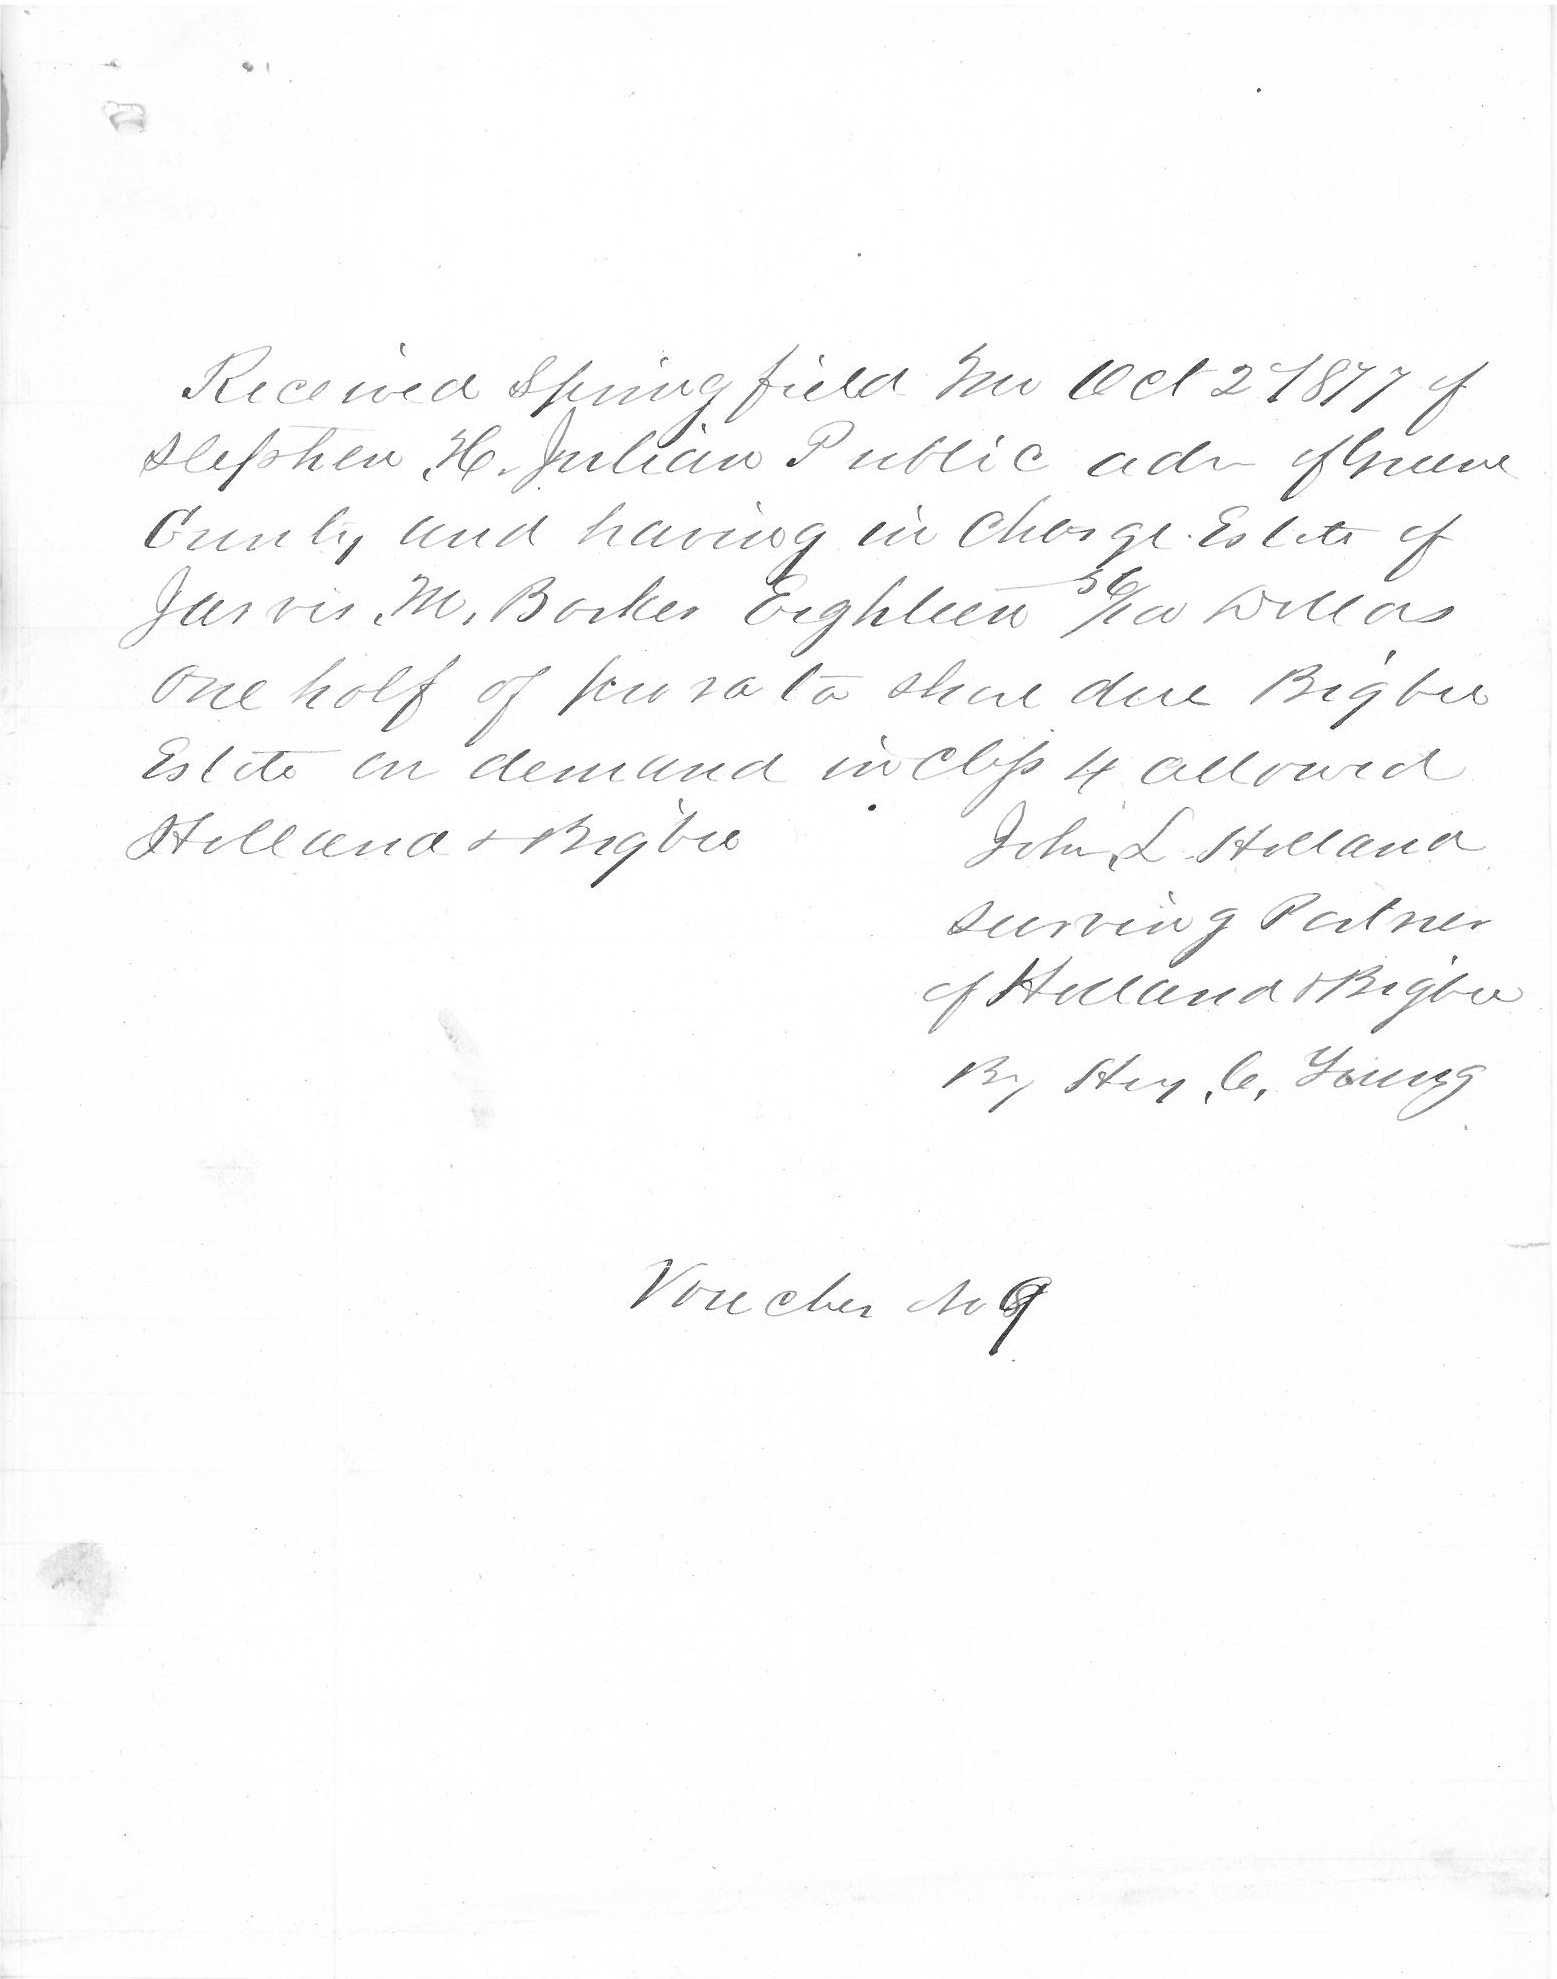 Received Springfield Mo Oct 2d 1877 of
Stephen H. Julian Public adm of Greene
County and having in Charge Estate of
Jarvis M. Barker Eighteen 56/100 Dollars
One half of pro rata share due Bigbee
Estate on demand in Class 4 allowed
Holland & Bigbee
John L. Holland
Surviving Partner
of Holland & Bigbee
By Hry. C. Young
Voucher No 9